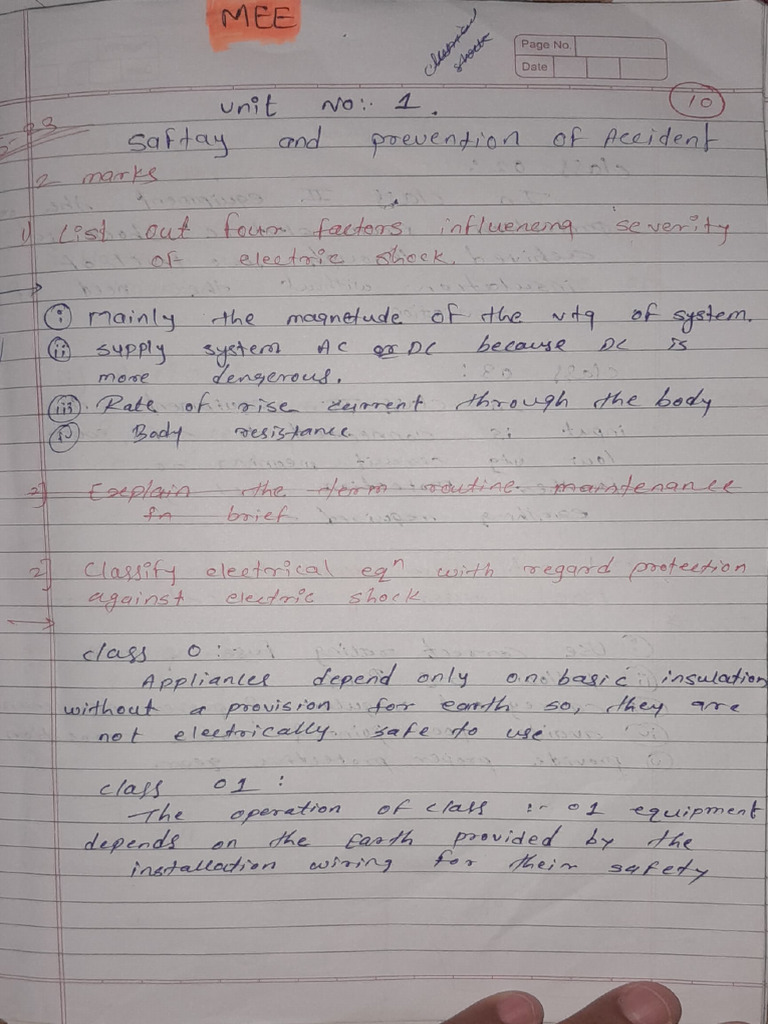 MEE
Electrical
shock
Page No.
Date
Unit No:- 1.
10
Saftay and prevention of Accident
2 marks
1) List out four factors influeneing severity
of electric shock.
(i) Mainly the magnetude of the vtg of system.
(ii) supply system AC or DC because DC is
more dengerous.
(iii) Rate of rise current through the body
Body resistance
2] Explain the term routine maintenance
In brief
2] Classify electrical eqn with regard protection
against electric shock
class 0 :-
Appliances depend only on basic insulation
without a provision for earth so, they are
not electrically safe to use
class 01 :
The operation of class :- 01 equipment
depends on the Earth provided by the
installation wiring for their safety